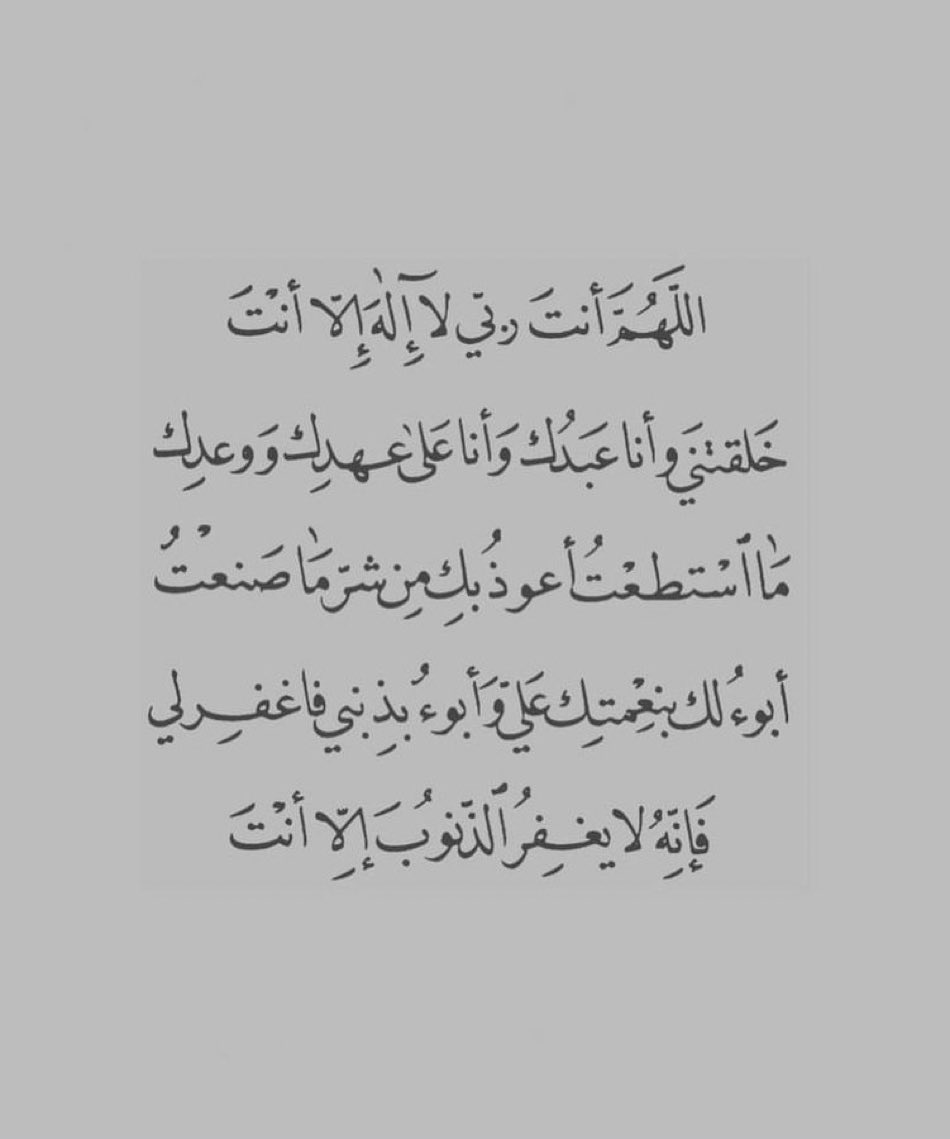 اللَّهُمَّ أَنتَ رَبِّي لَآ إِلَٰهَ إِلَّا أَنْتَ
خَلَقْتَنِي وَأَنَا عَبْدُكَ وَأَنَا عَلَىٰ عَهْدِكَ وَوَعْدِكَ
مَا ٱسْتَطَعْتُ أَعُوذُ بِكَ مِن شَرِّ مَا صَنَعْتُ
أَبُوءُ لَكَ بِنِعْمَتِكَ عَلَيَّ وَأَبُوءُ بِذَنْبِي فَاغْفِرْ لِي
فَإِنَّهُ لَا يَغْفِرُ ٱلذُّنُوبَ إِلَّا أَنْتَ